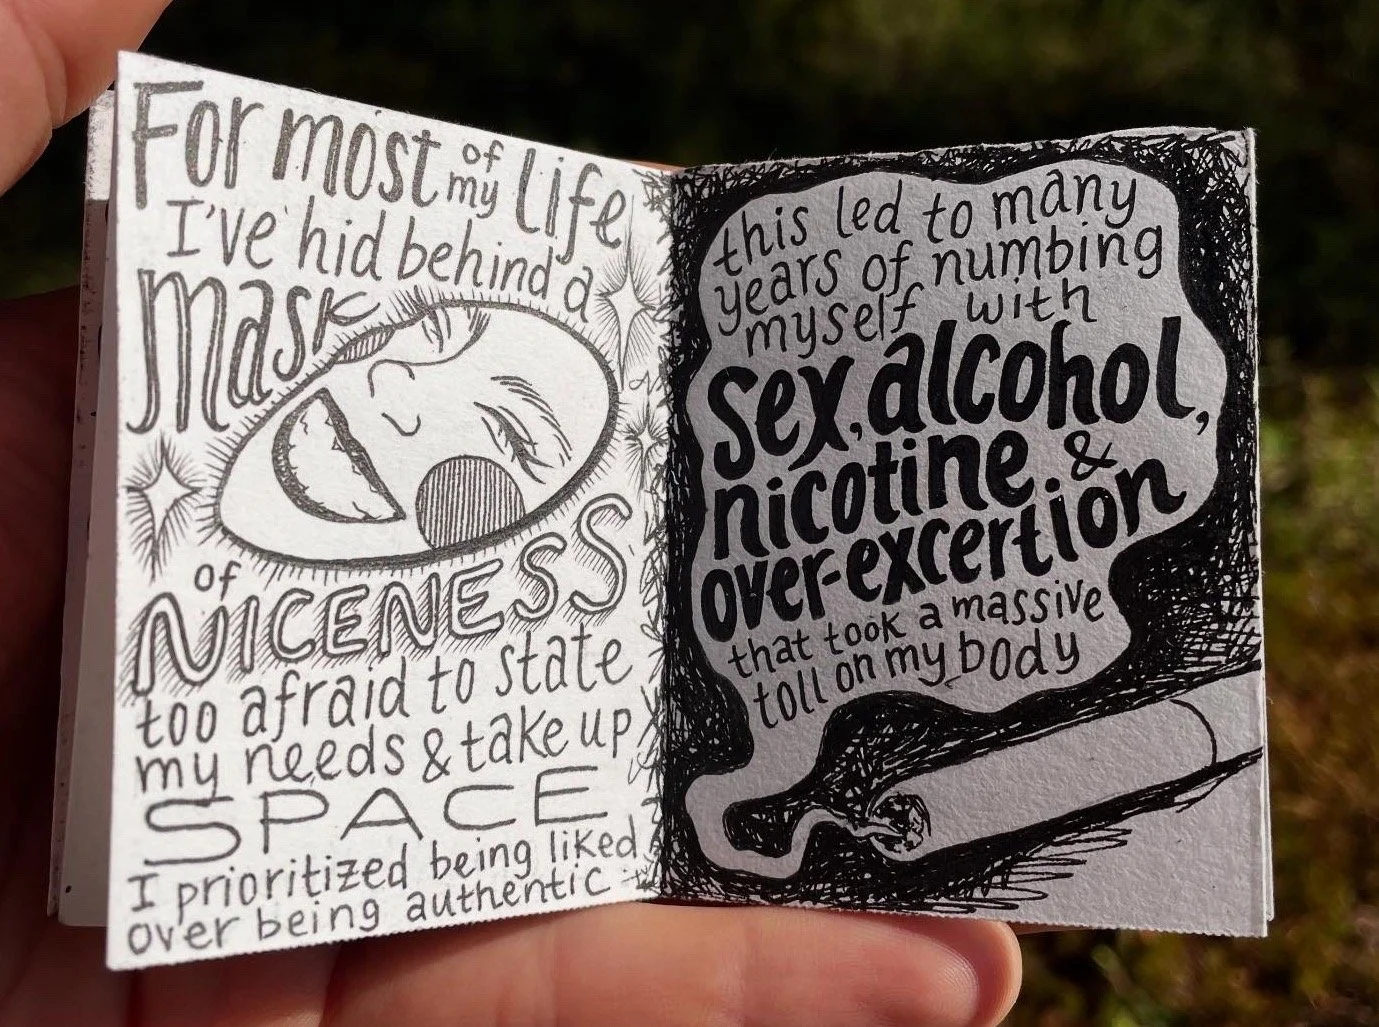 For most of my life
I've hid behind a
mask
of
NICENESS
too afraid to state
my needs & take up
SPACE
I prioritized being liked
over being authentic
this led to many
years of numbing
myself with
sex, alcohol,
nicotine, &
over-excertion
that took a massive
toll on my body